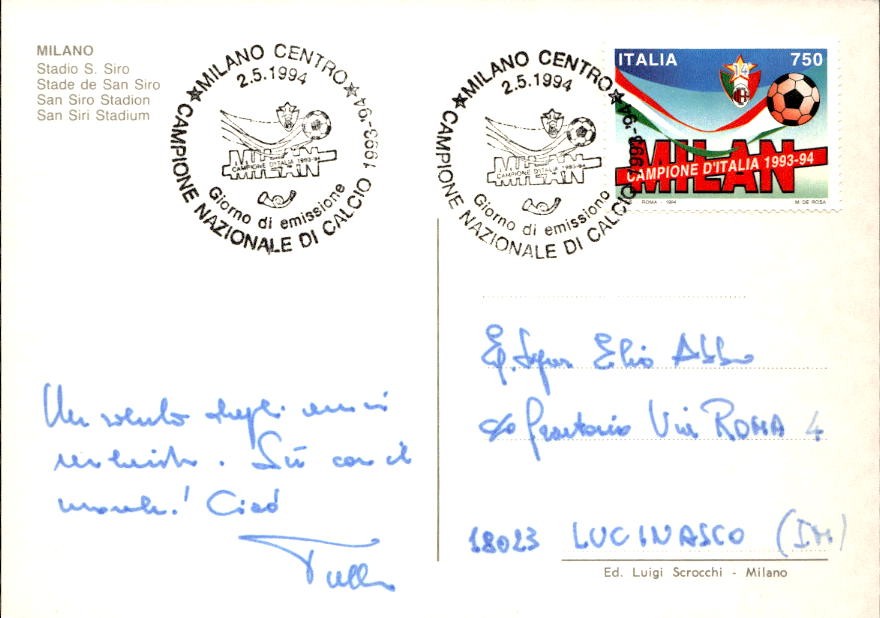 MILANO
Stadio S. Siro
Stade de San Siro
San Siro Stadion
San Siri Stadium
★MILANO CENTRO★
2.5.1994
MILAN
CAMPIONE D'ITALIA 1993-94
Giorno di emissione
CAMPIONE NAZIONALE DI CALCIO 1993-94
★MILANO CENTRO★
2.5.1994
MILAN
CAMPIONE D'ITALIA 1993-94
Giorno di emissione
CAMPIONE NAZIONALE DI CALCIO 1993-94
ITALIA 750
14
MILAN
CAMPIONE D'ITALIA 1993-94
ROMA - 1994 M. DE ROSA
Un saluto degli amici
. Sù con il
morale! Ciao
Tullio
Eg. Signor Elio Abbo
c/o Frantoio Via ROMA 4
18023 LUCINASCO (IM)
Ed. Luigi Scrocchi - Milano